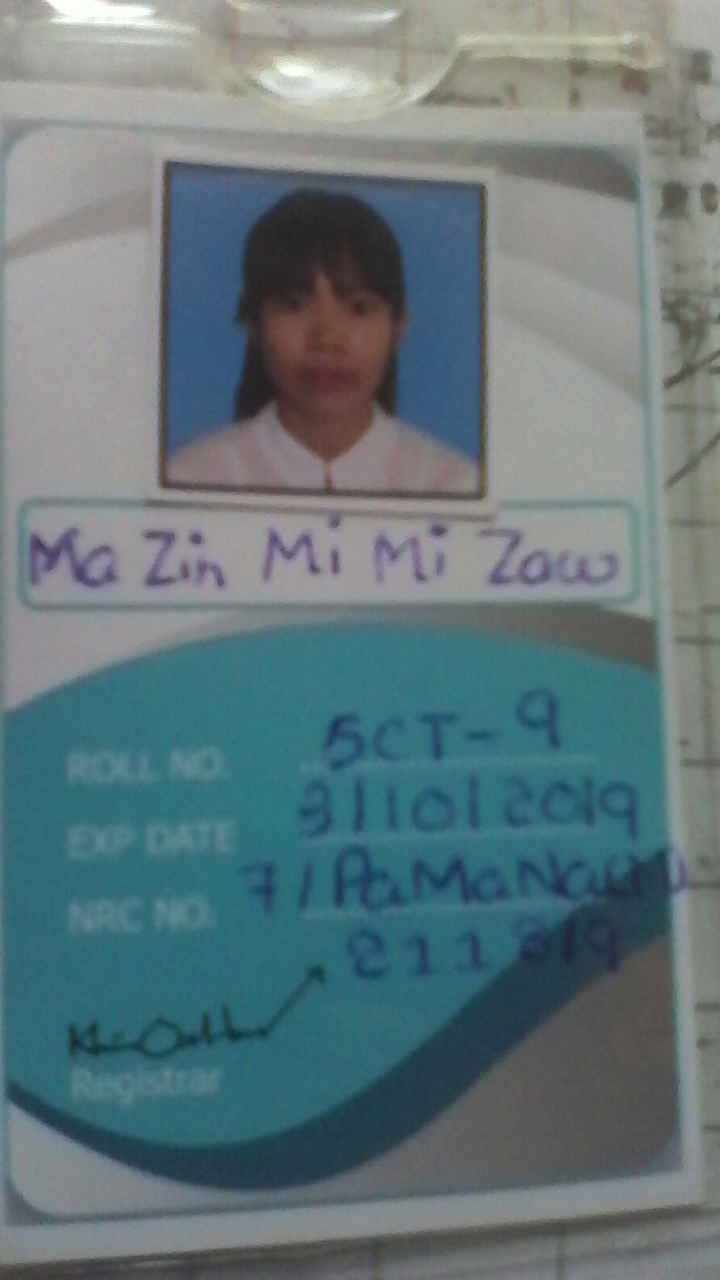 Ma Zin Mi Mi Zaw
ROLL NO. 5CT-9
EXP DATE 3/10/2019
NRC NO. 7/PaMaNa
Registrar